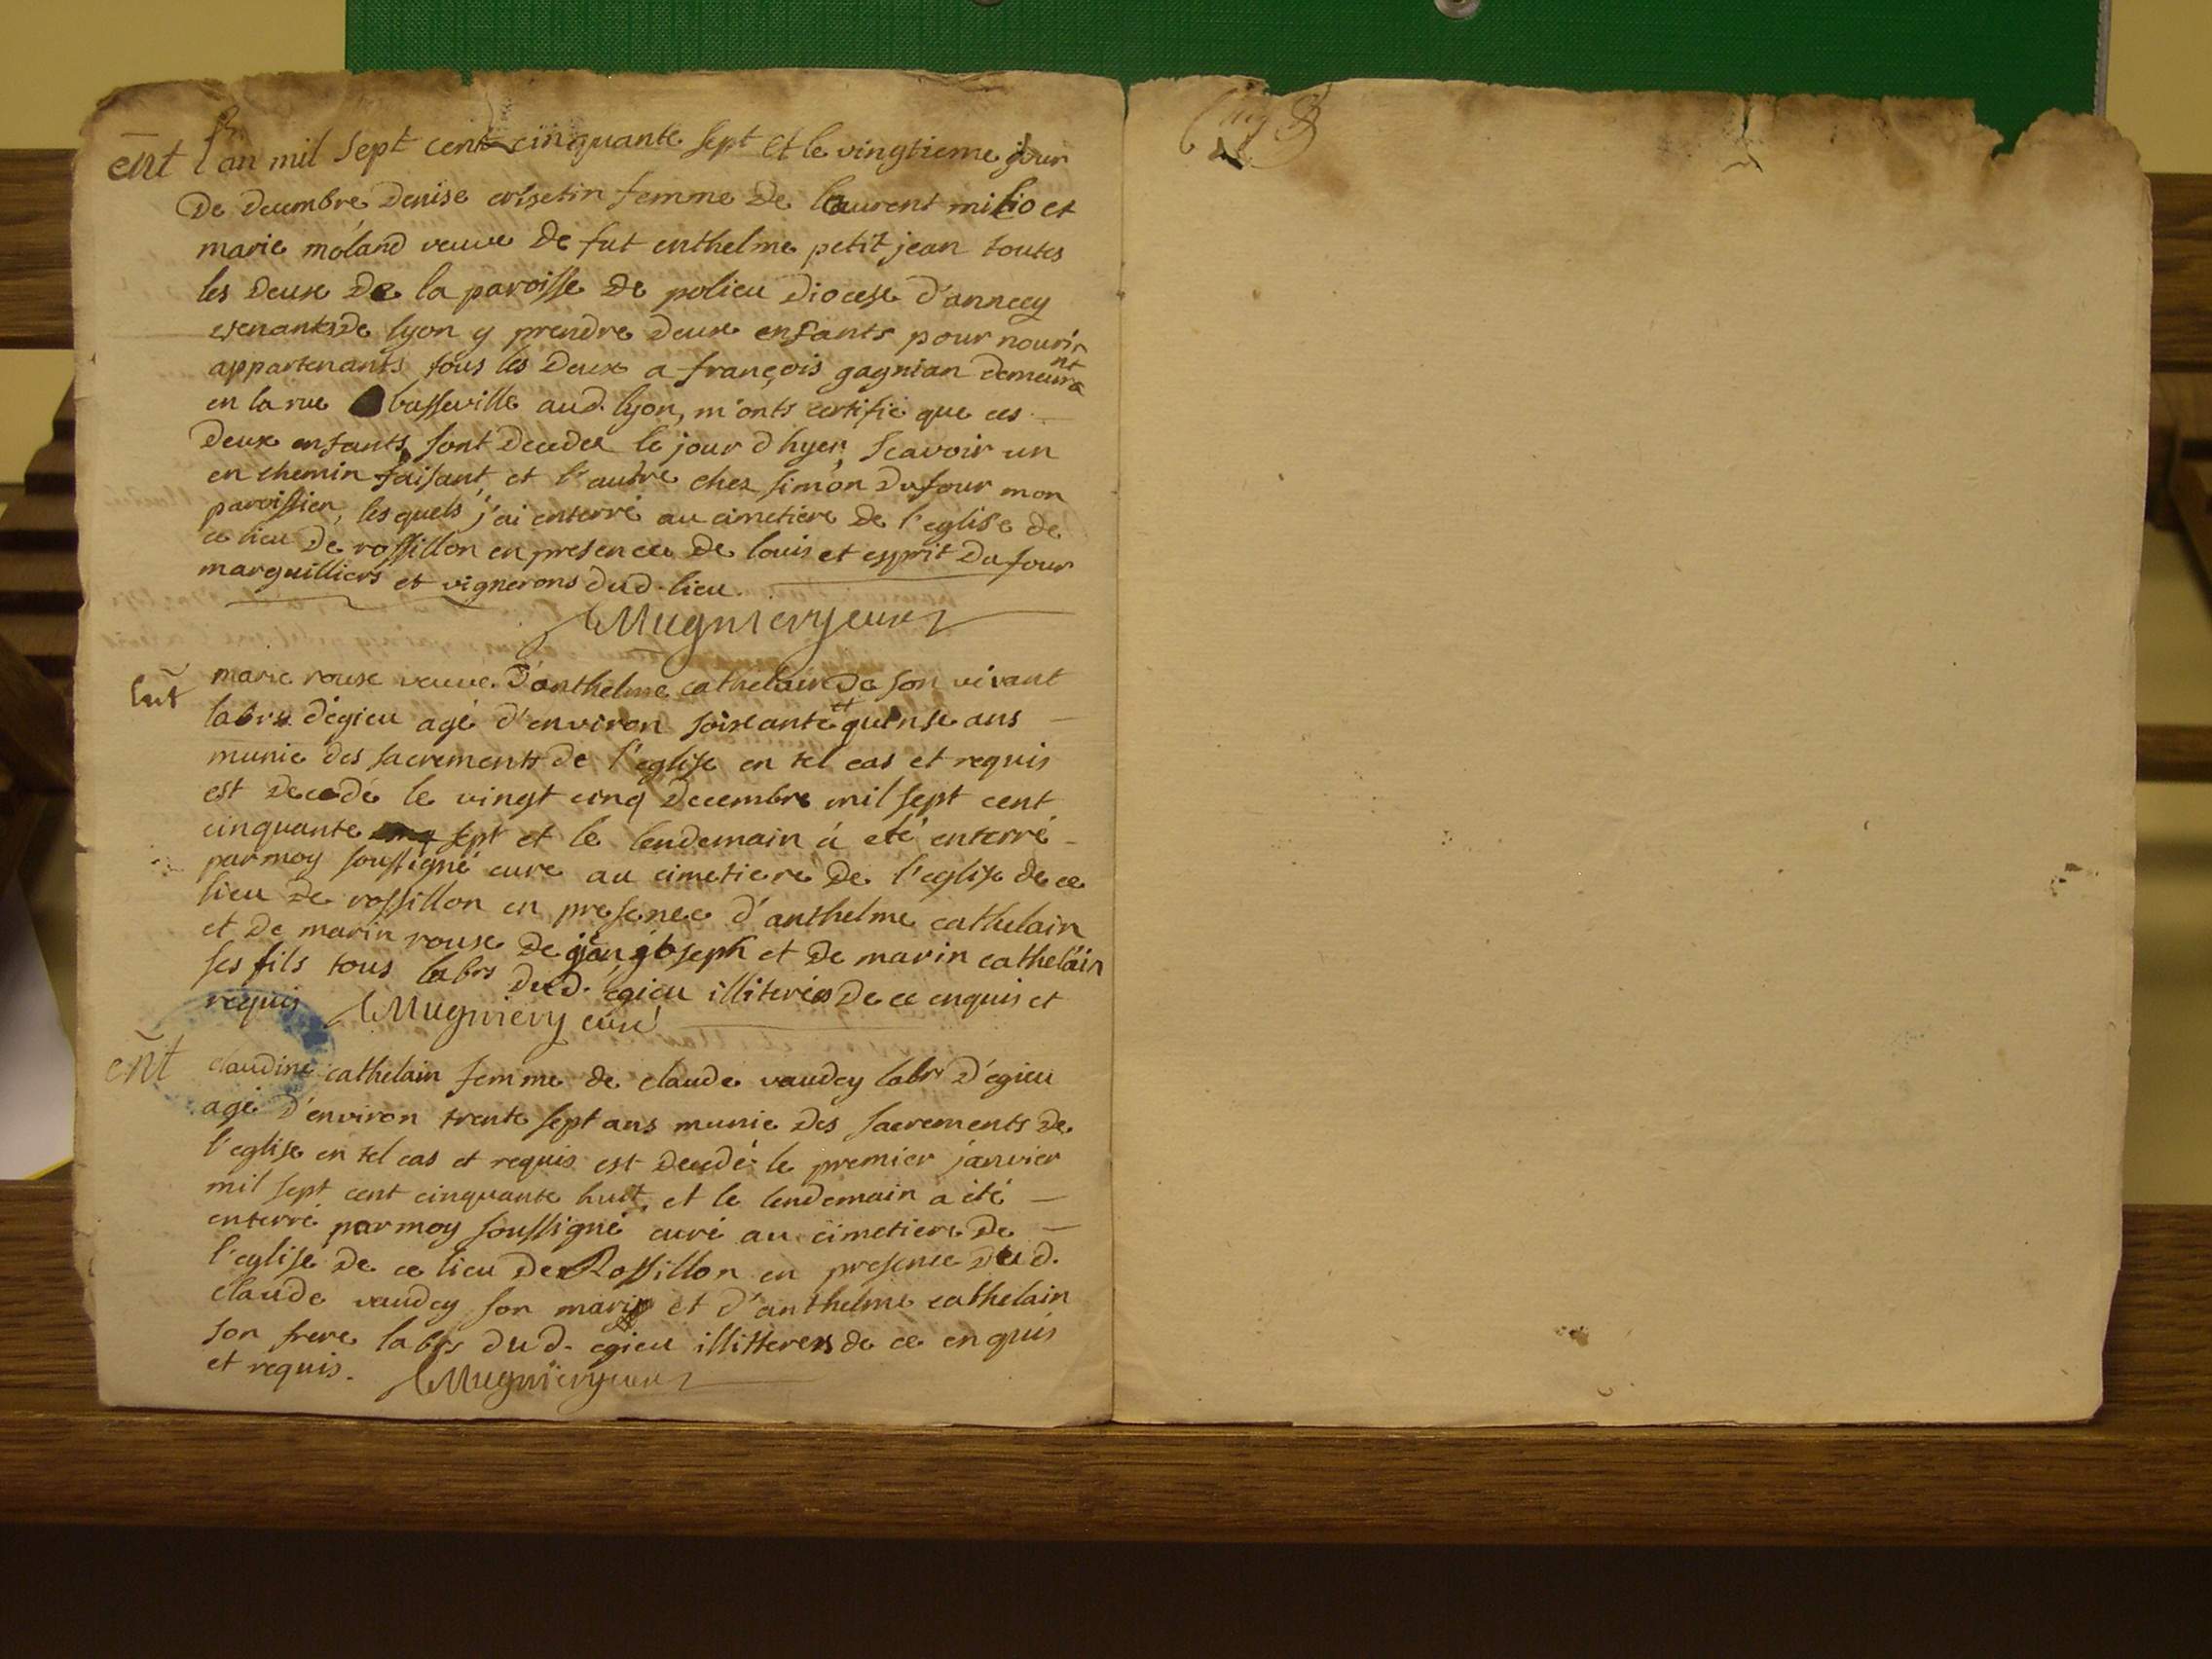 ent l'an mil sept cent cinquante sept et le vingtieme jour
de decembre denise femme de laurent milio et
marie moland veuve de fut enthelme petit jean toutes
les deux de la paroisse de polieu diocese d'annecy
venants de lyon y prendre deux enfants pour nourir
appartenants tous les deux a françois gagnian demeurant
en la rue basseville aud. lyon, m'onts certifié que ces
deux enfants sont decedes le jour d'hyer, scavoir un
en chemin faisant et l'autre chez simon dufour mon
paroissien, lesquels j'ai enterré au cimetiere de l'eglise de
ce lieu de rossillon en presence de louis et esprit dufour
marguilliers et vignerons dud. lieu.
Mugniery curé
ent marie roux veuve d'anthelme cathelain de son vivant
labrs d'égieu agé d'environ soixante et quinse ans
munie des sacrements de l'eglise en tel cas et requis
est decedé le vingt cinq decembre mil sept cent
cinquante sept et le lendemain à eté enterré
par moy soussigné curé au cimetiere de l'eglise de ce
lieu de rossillon en presence d'anthelme cathelain
et de marin roux de jean joseph et de marin cathelain
ses fils tous labrs dud. égieu illiterés de ce enquis et
requis Mugniery curé
ent claudine cathelain femme de claude vaudey labr d'égieu
agé d'environ trente sept ans munie des sacrements de
l'eglise en tel cas et requis est decedé le premier janvier
mil sept cent cinquante huit, et le lendemain a été
enterré par moy soussigné curé au cimetiere de
l'eglise de ce lieu de Rossillon en presence dud.
claude vaudey son mary et d'anthelme cathelain
son frere labrs dud. egieu illitteres de ce enquis
et requis. Mugniery curé